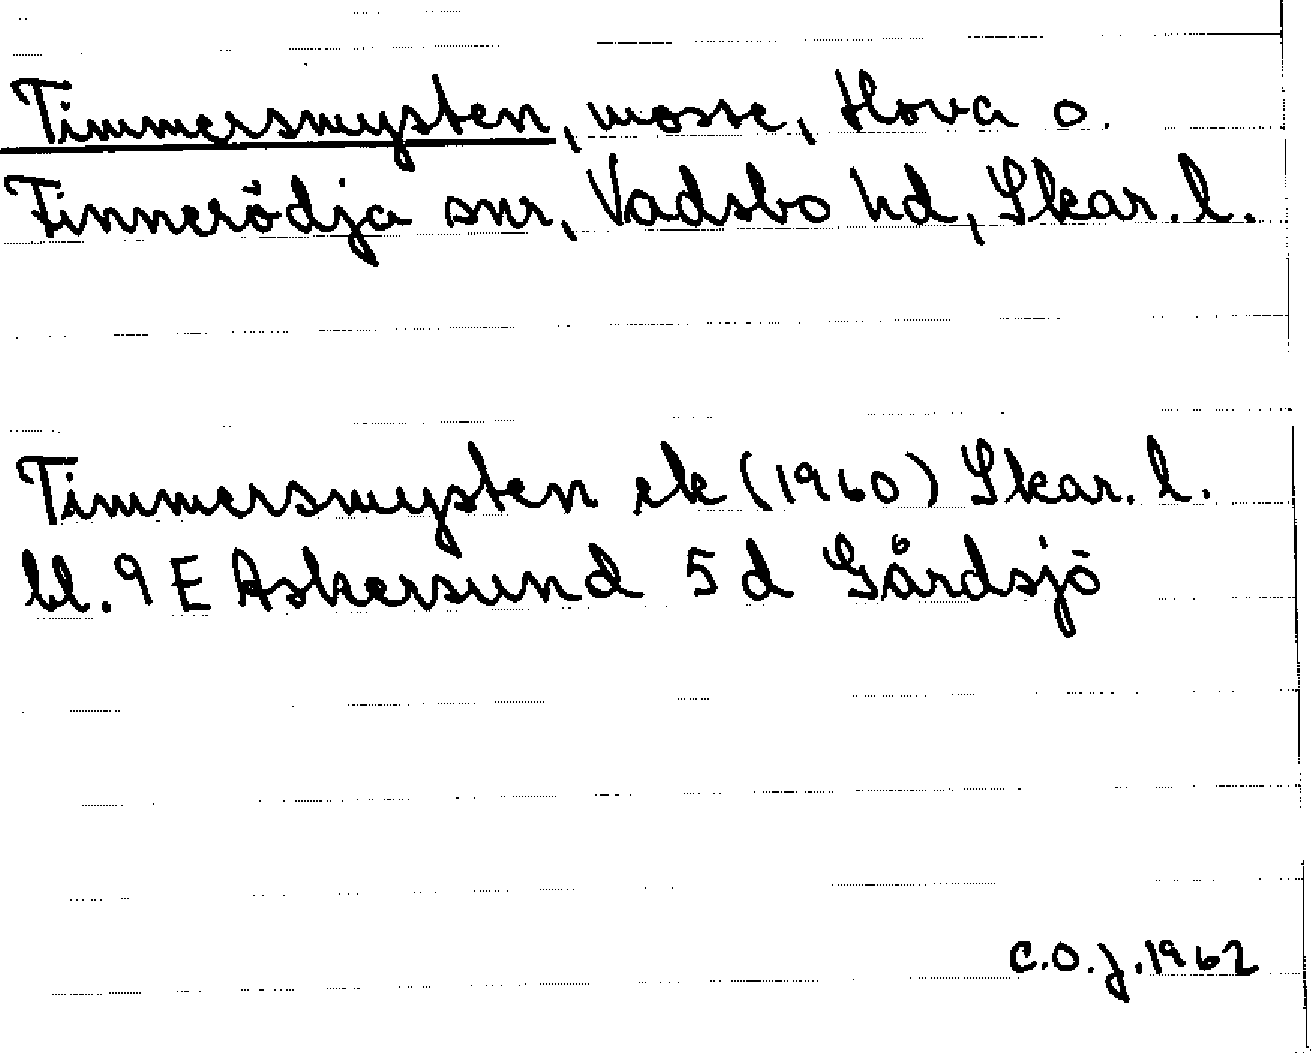 Timmersmysten, mosse, Hova o.
Finnerödja snr, Vadsbo hd, Skar. l.
Timmersmysten ek (1960) Skar. l.
bl. 9 E Askersund 5 d Gårdsjö
C.O.J. 1962